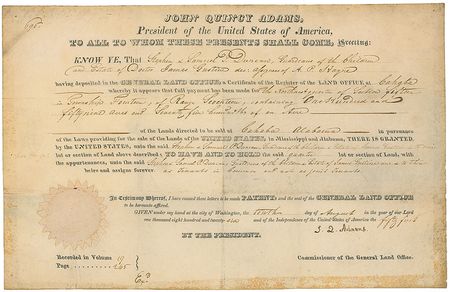 JOHN QUINCY ADAMS,
President of the United States of America,
TO ALL TO WHOM THESE PRESENTS SHALL COME, Greeting:
KNOW YE, That Stephen & Samuel P. Duncan, Guardians of the Children
and Estate of Doctor James dec. of A. P. Hayne
having deposited in the GENERAL LAND OFFICE, a Certificate of the Register of the LAND OFFICE at Cahaba
whereby it appears that full payment has been made for the of Section fifteen
in Township Fourteen, of Range Seventeen, containing One Hundred and
acres and Seventy five hundredths of an Acre
of the Lands directed to be sold at Cahaba Alabama in pursuance
of the Laws providing for the sale of the Lands of the UNITED STATES, in Mississippi and Alabama, THERE IS GRANTED,
by the UNITED STATES, unto the said Stephen & Samuel P. Duncan
lot or section of Land above described: TO HAVE AND TO HOLD the said quarter lot or section of Land, with
the appurtenances, unto the said
heirs and assigns forever, as tenants in common and not as joint tenants.
In Testimony Whereof, I have caused these letters to be made PATENT; and the seal of the GENERAL LAND OFFICE
to be hereunto affixed.
GIVEN under my hand at the city of Washington, the day of August in the year of our Lord
one thousand eight hundred and twenty and of the Independence of the United States of America the fifty first
BY THE PRESIDENT, J. Q. Adams.
Recorded in Volume 19
Page 265
Commissioner of the General Land Office.
Exd